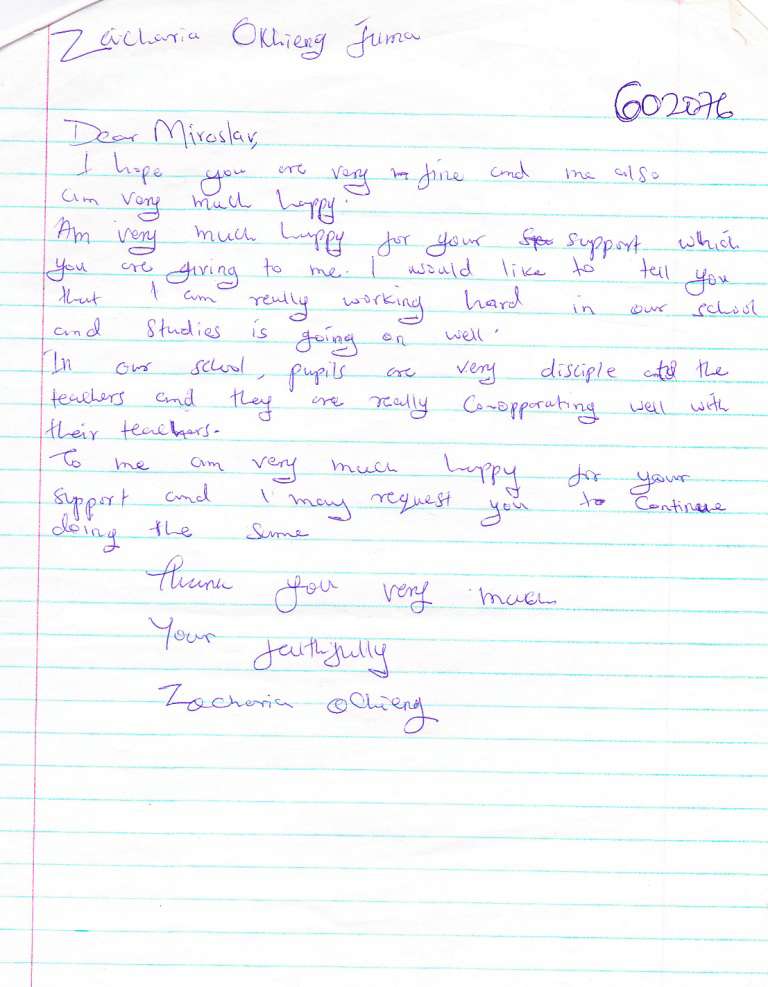 Zacharia Okhieng Juma
602076
Dear Miroslav,
I hope you are very fine and me also
am very much happy.
Am very much happy for your support which
you are giving to me. I would like to tell you
that I am really working hard in our school
and Studies is going on well.
In our school, pupils are very disciple the
teachers and they are really Co-opporating well with
their teachers.
To me am very much happy for your
support and I may request you to Continue
doing the same
Thank you very much
Your faithfully
Zacharia OChieng